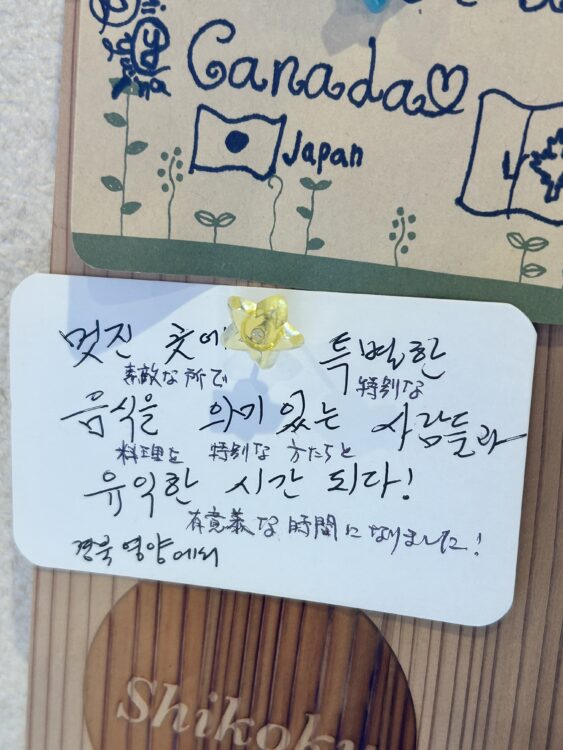 Canada
Japan
멋진 곳에
특별한
素敵な所で
特別な
음식을 의미 있는 사람들과
料理を 特別な 方たちと
유익한 시간 되다!
有意義な時間になりました!
경북 영양에서
Shikoku